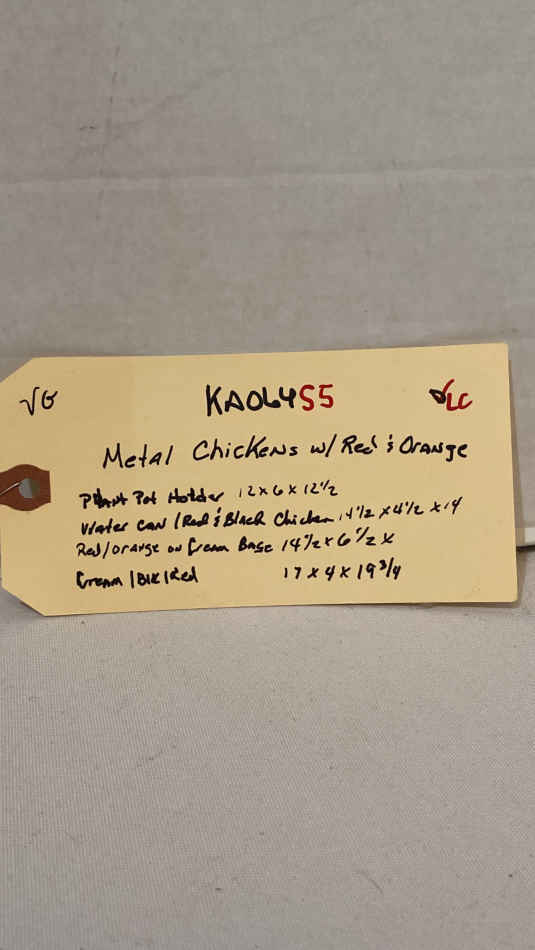 VG KA064S5 LC
Metal Chickens w/ Red & Orange
Plant Pot Holder 12 x 6 x 12 1/2
Water Can / Red & Black Chicken 14 1/2 x 4 1/2 x 14
Red/Orange on Cream Base 14 1/2 x 6 1/2 x
Cream / Blk / Red 17 x 4 x 19 3/4